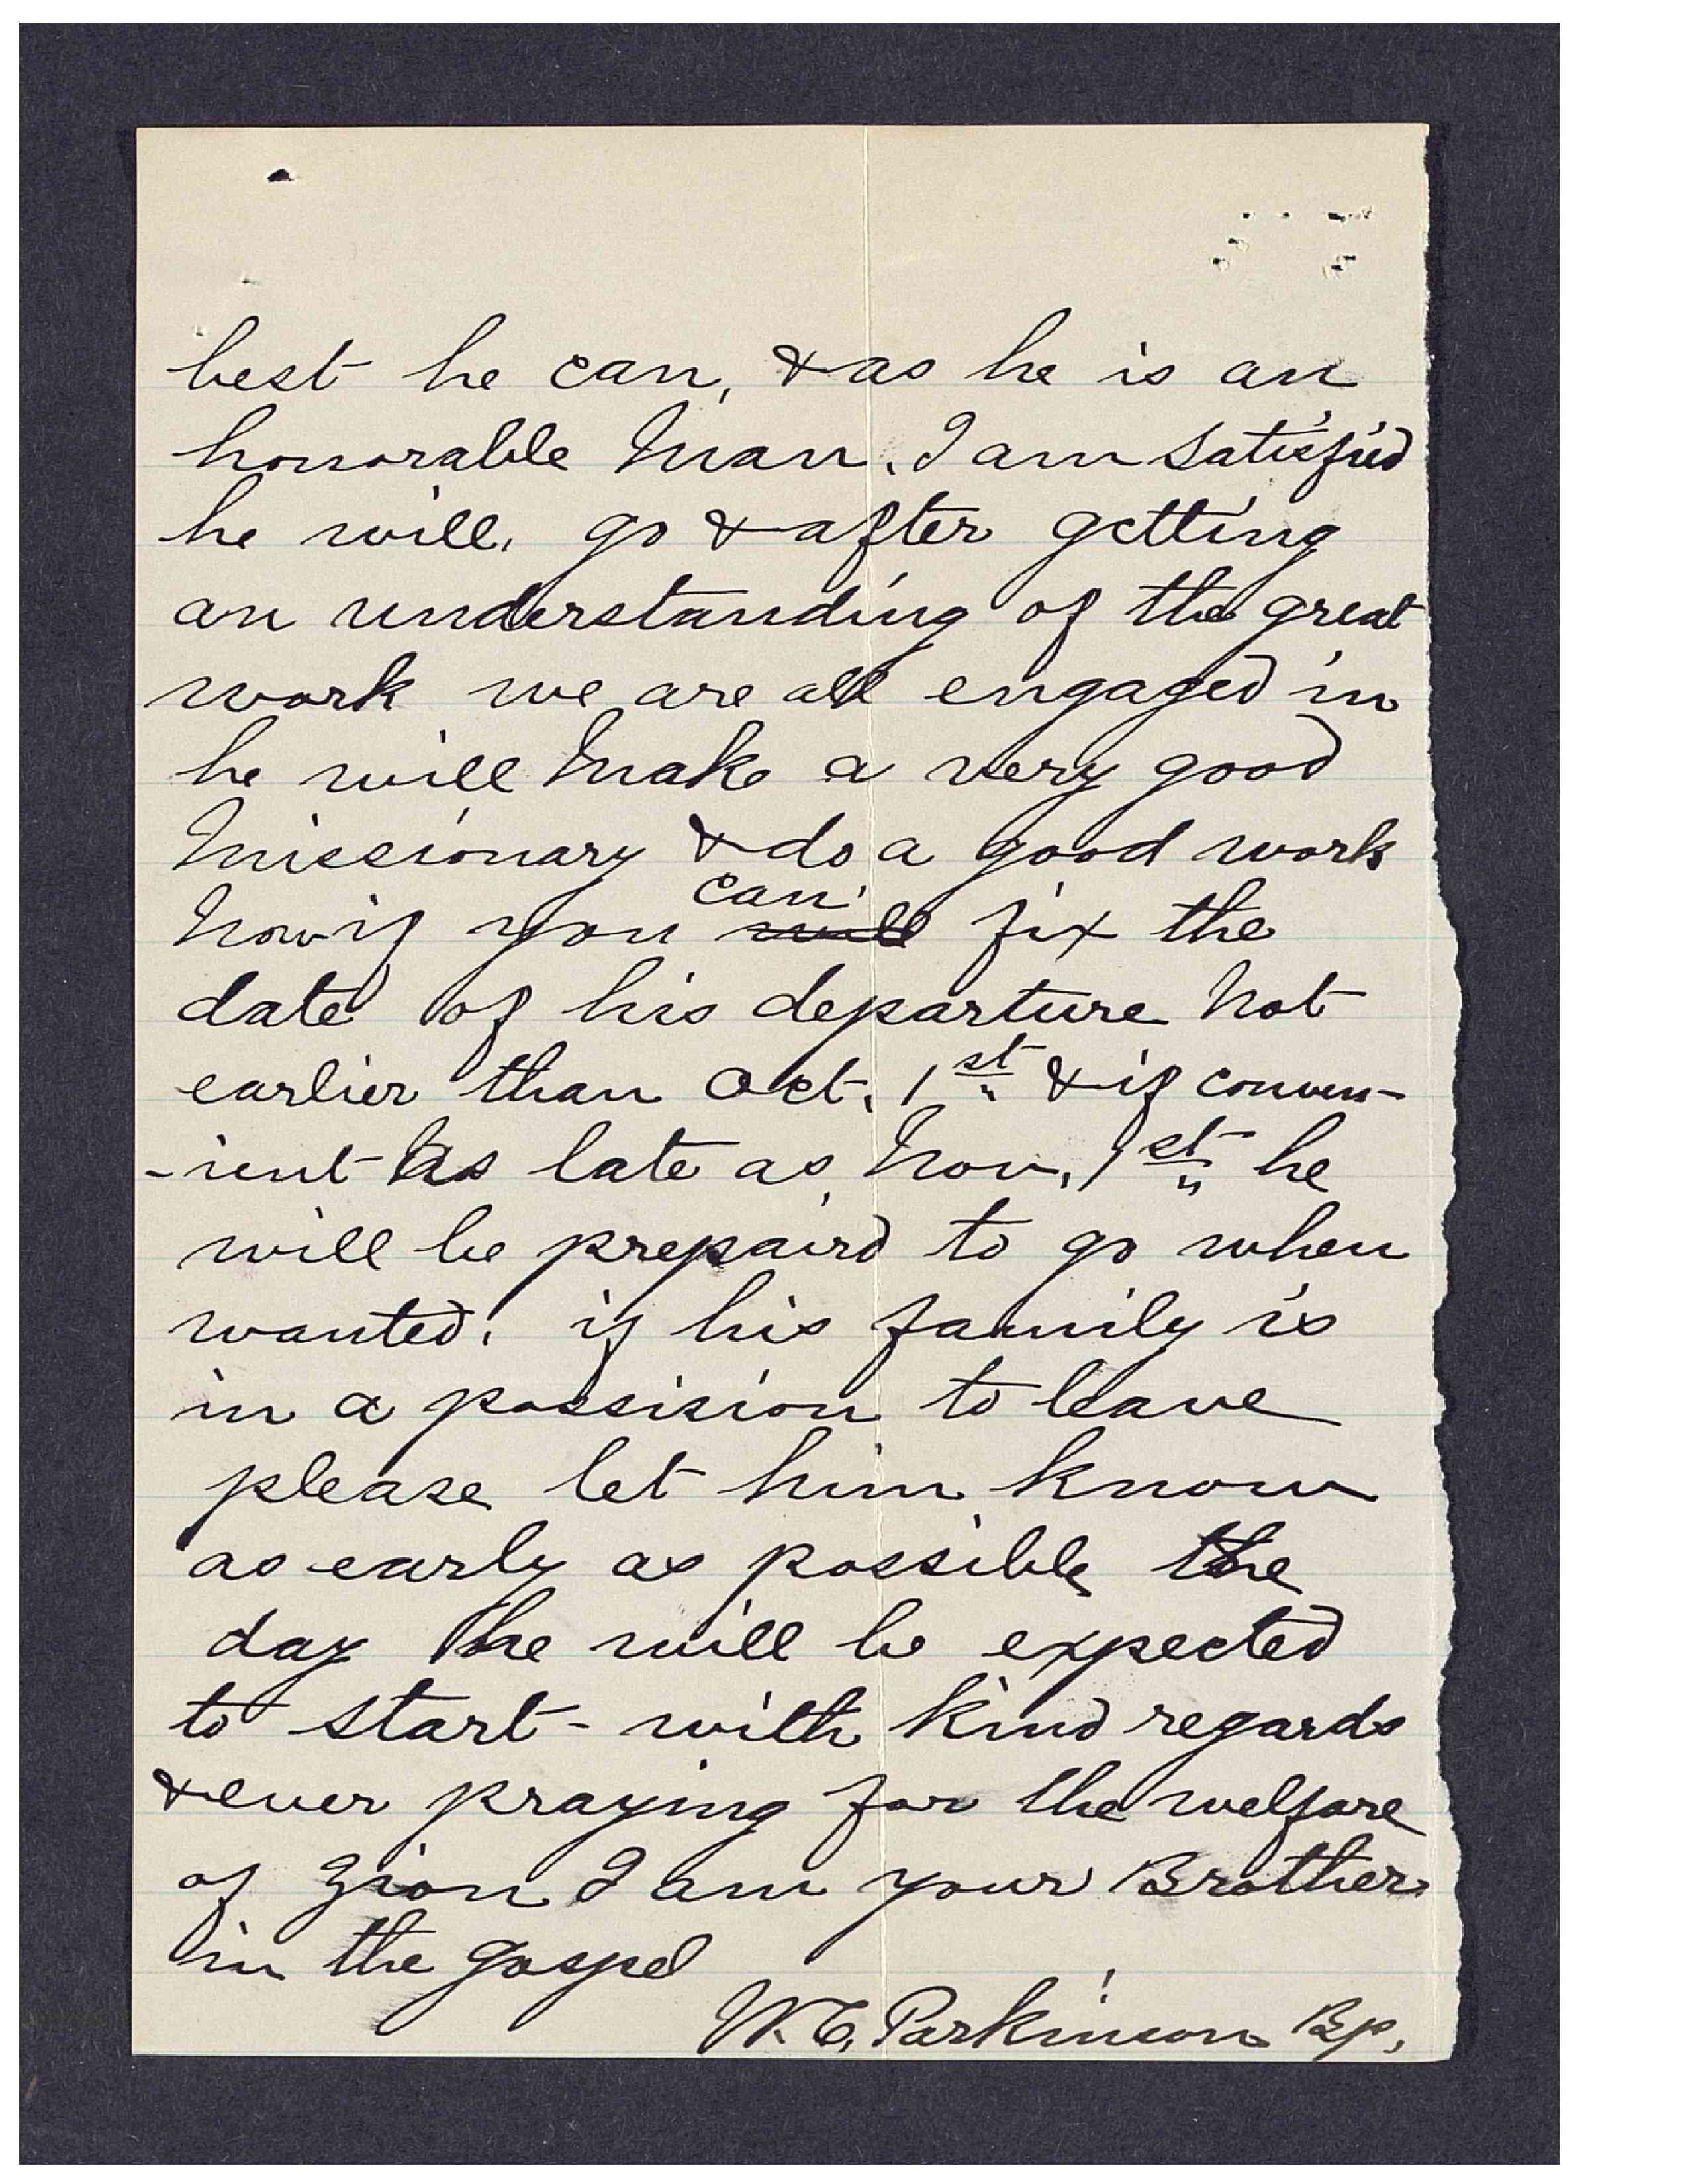 best he can, & as he is an
honorable Man. I am satisfied
he will, go & after getting
an understanding of the great
work we are all engaged in
he will Make a very good
Missionary & do a good work
Now if you can ~~will~~ fix the
date of his departure Not
earlier than Oct. 1st & if conven-
-ient As late as Nov. 1st he
will be prepaird to go when
wanted. if his family is
in a possision to leave
please let him know
as early as possible the
day he will be expected
to start - with kind regards
& ever praying for the welfare
of Zion I am your Brother
in the gospel
W. C. Parkinson Bp.